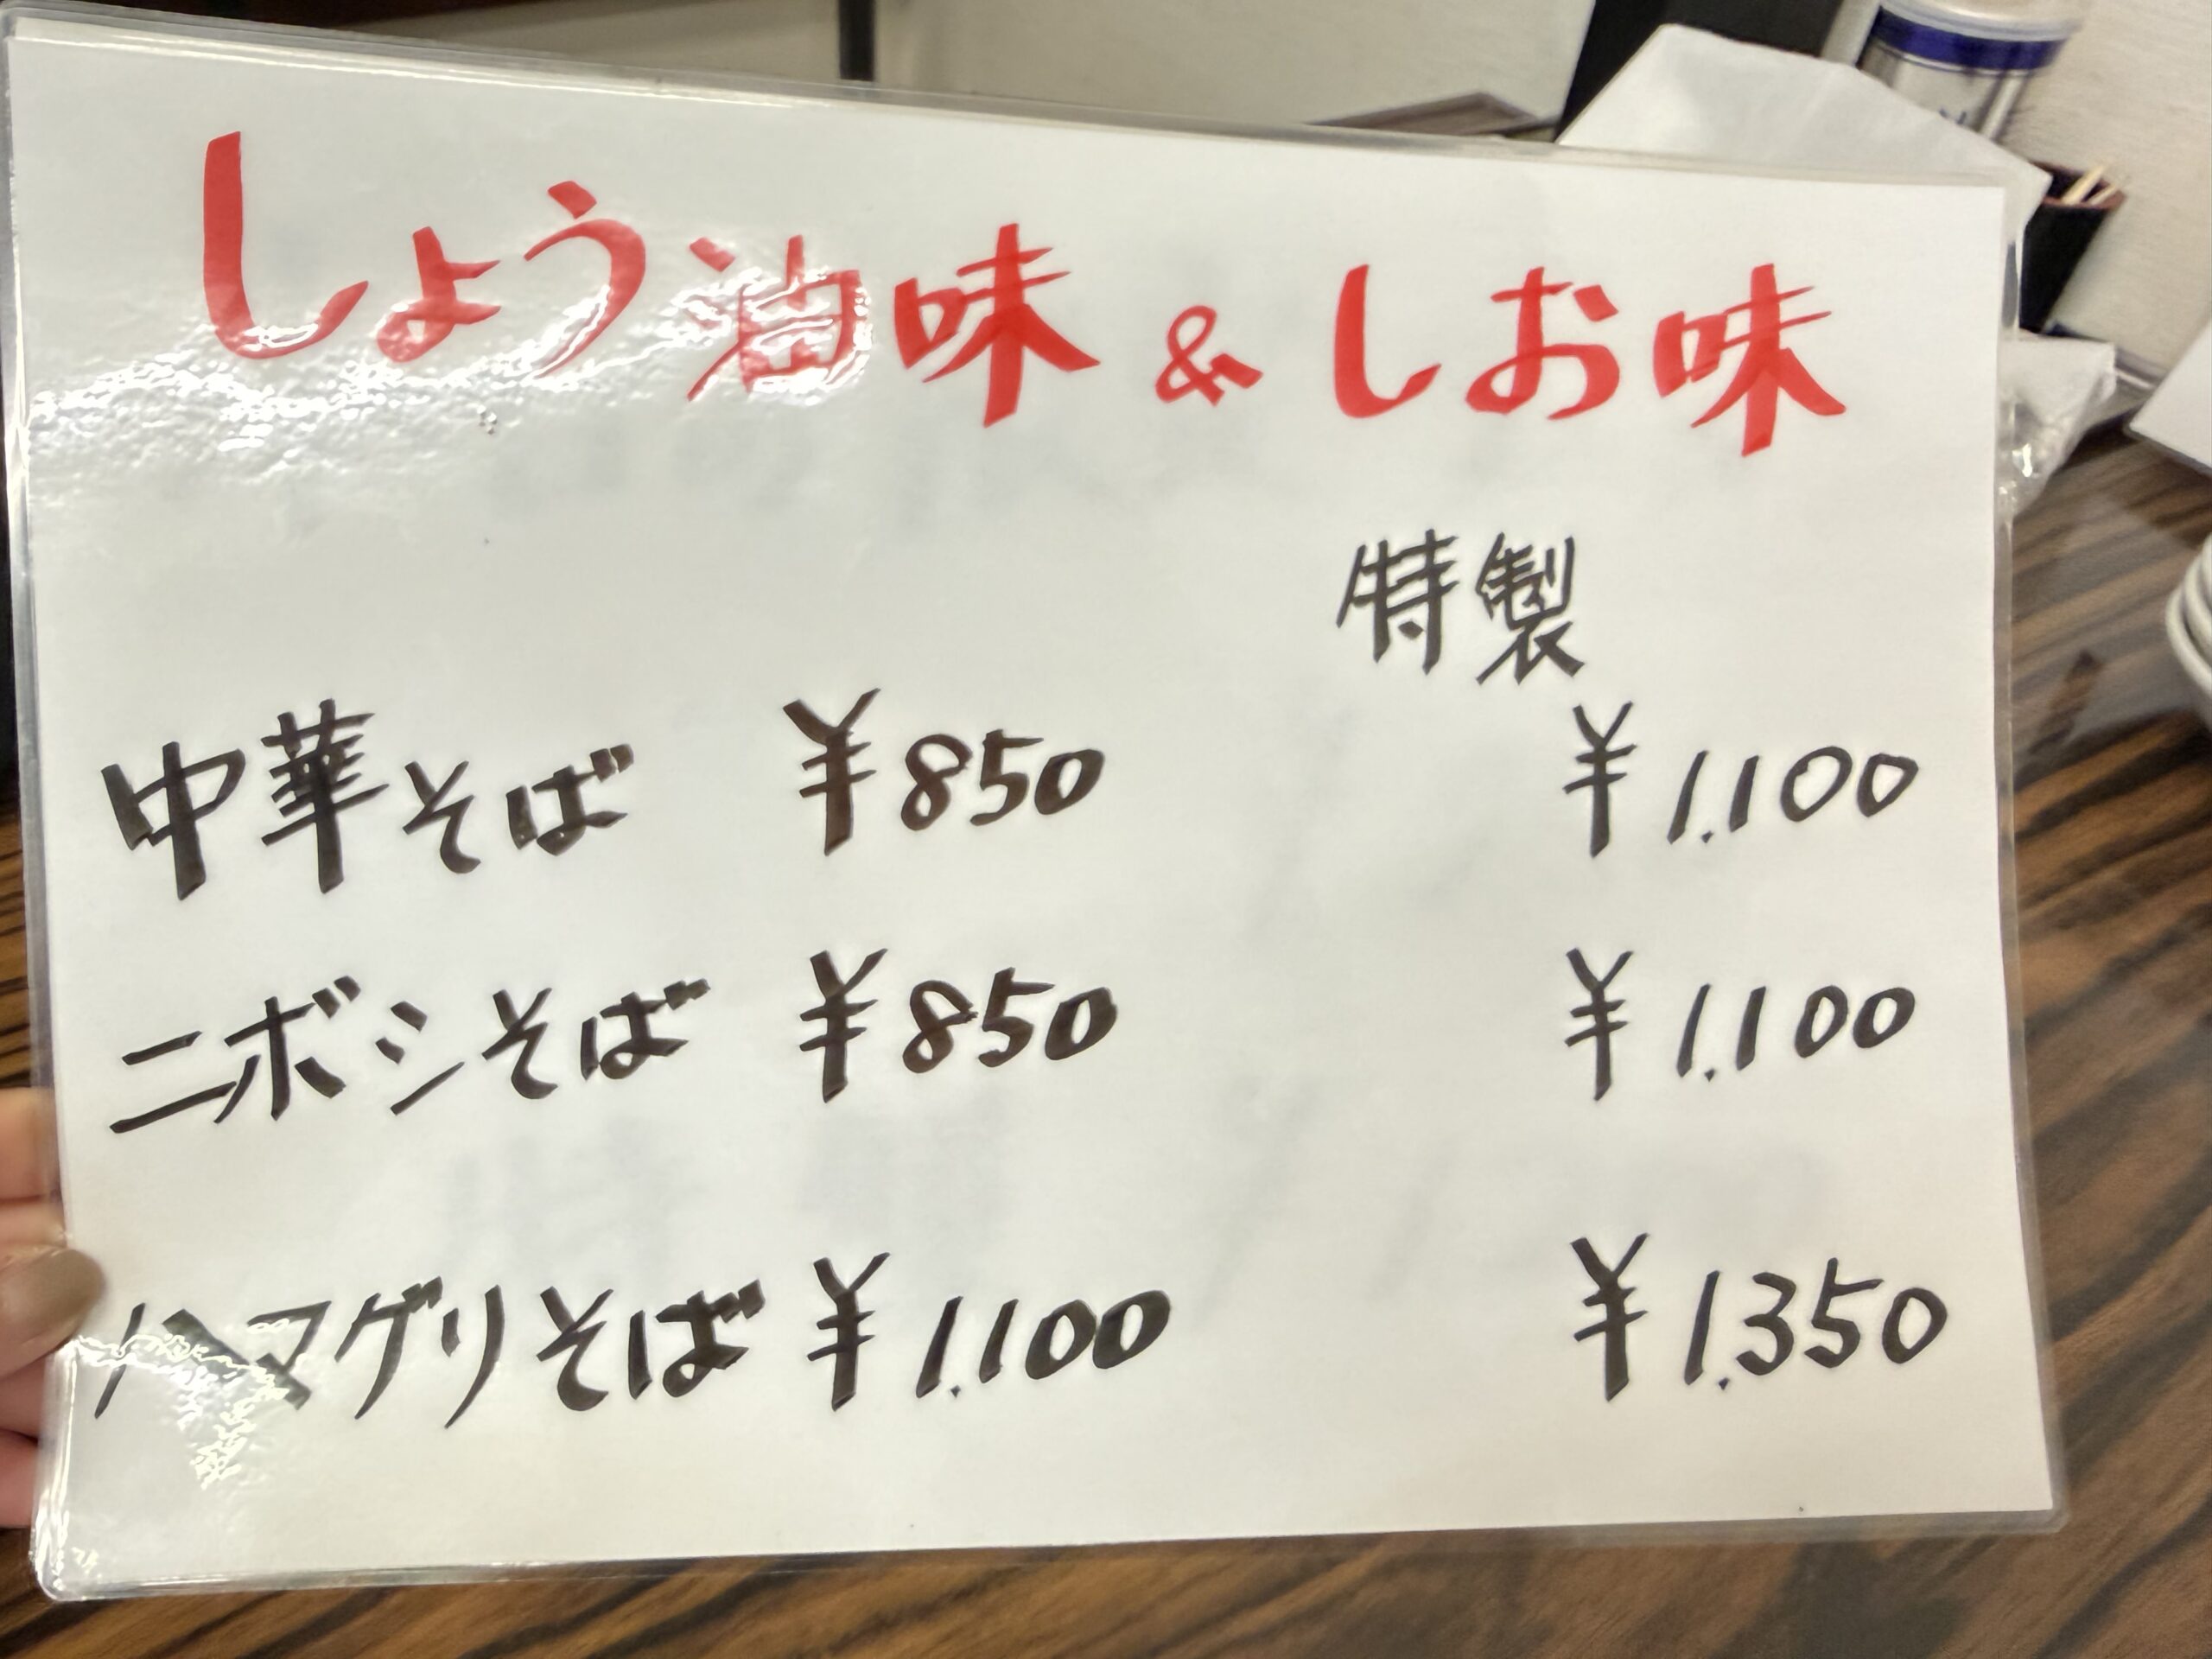 しょう油味 & しお味
特製
中華そば ¥850 ¥1.100
ニボシそば ¥850 ¥1.100
ハマグリそば ¥1.100 ¥1.350